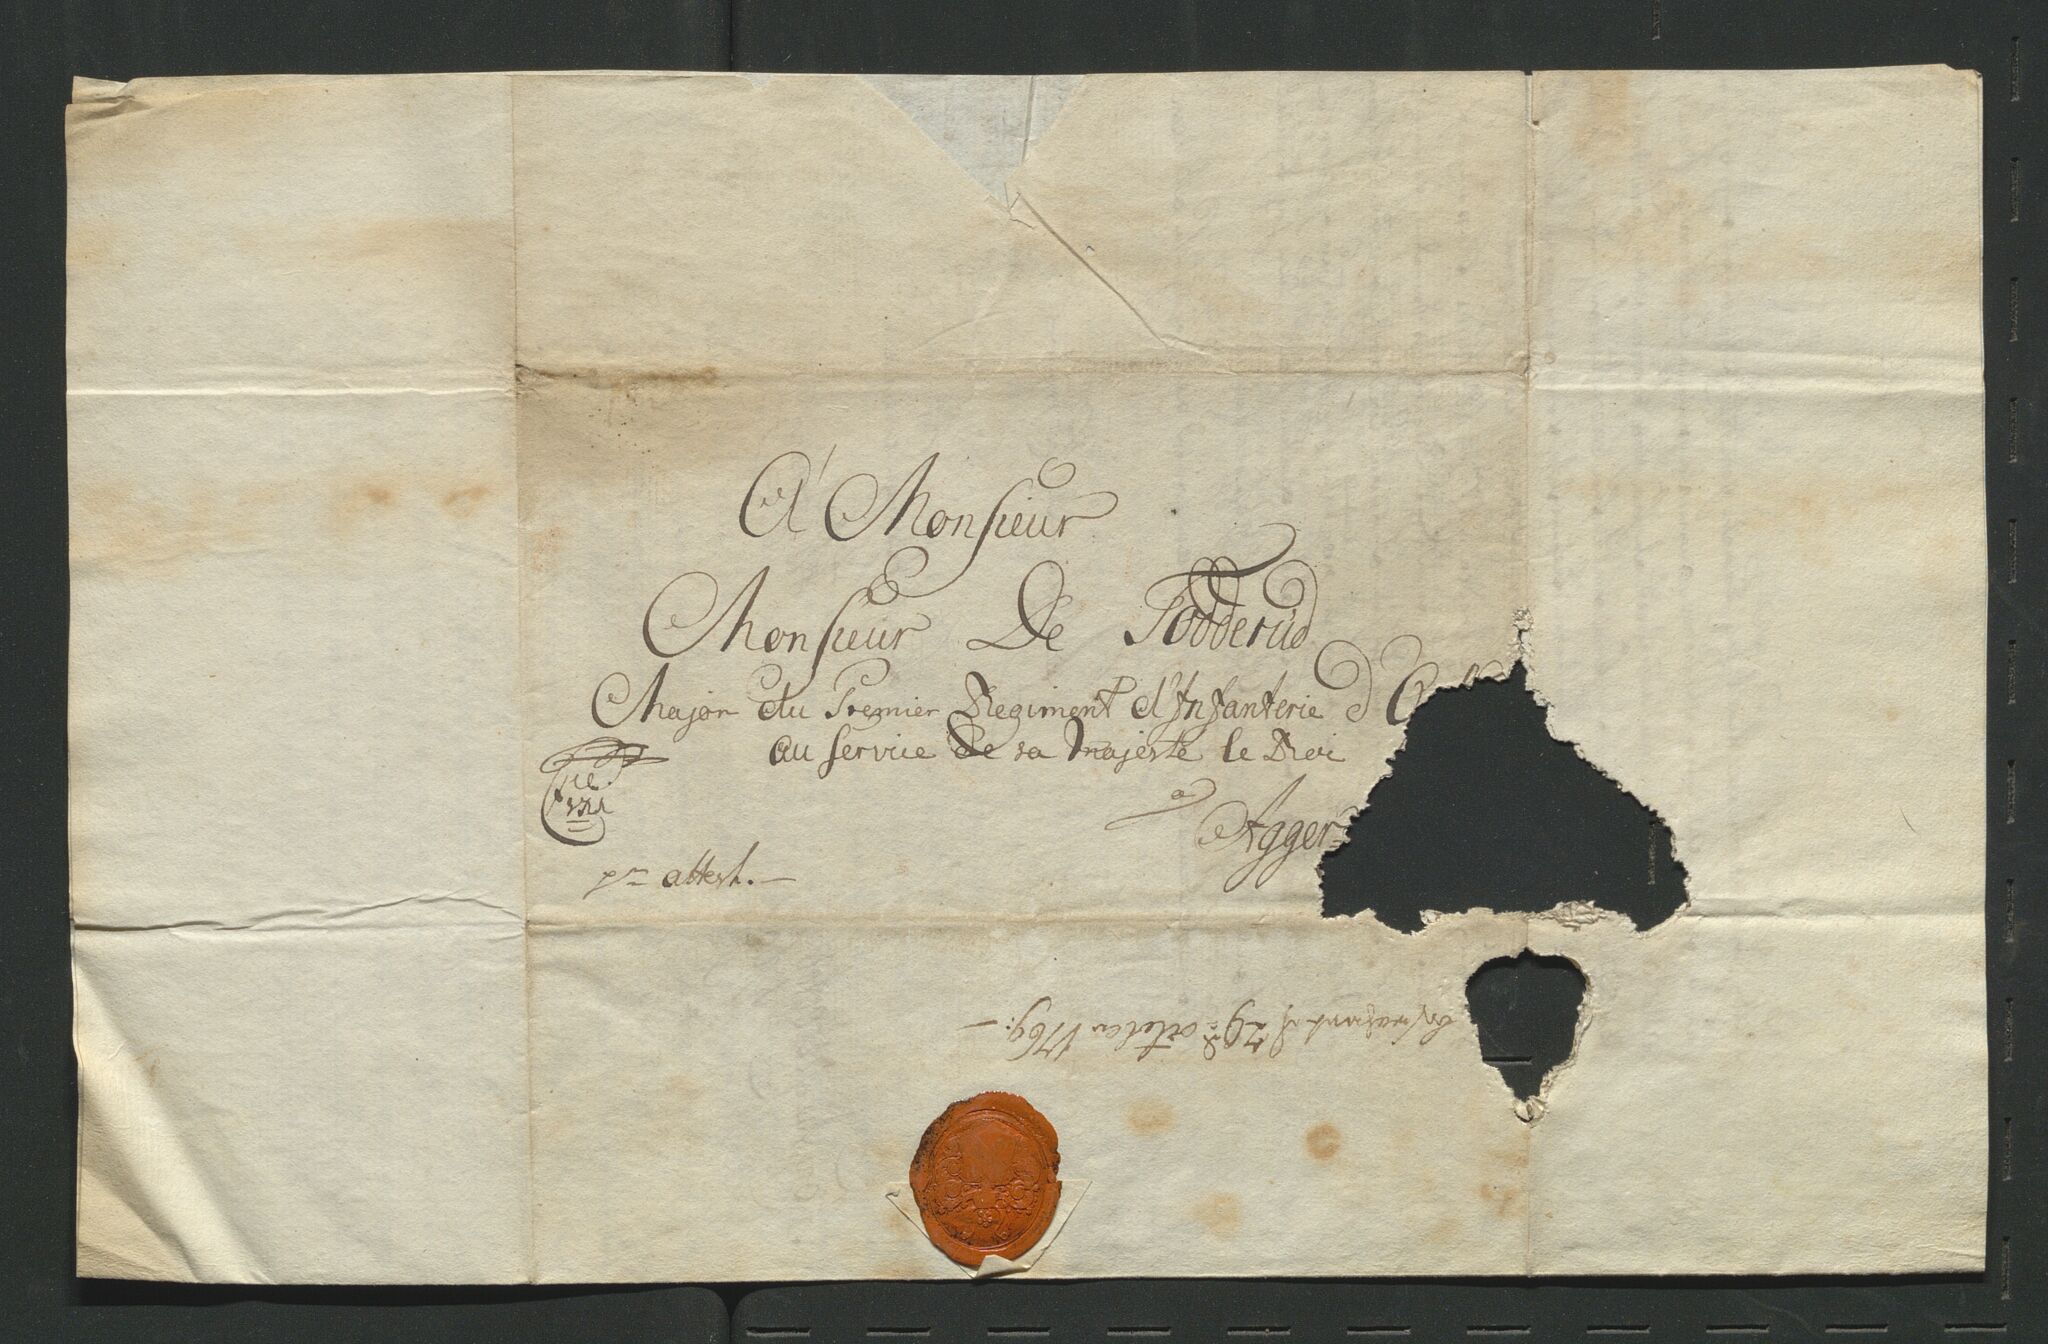 A Monsieur
Monsieur De Todderud
Major du Premier Regiment d'Infanterie d'
au service de sa Majesté le Roi
a
Agger
p attest.
29 october 1769.